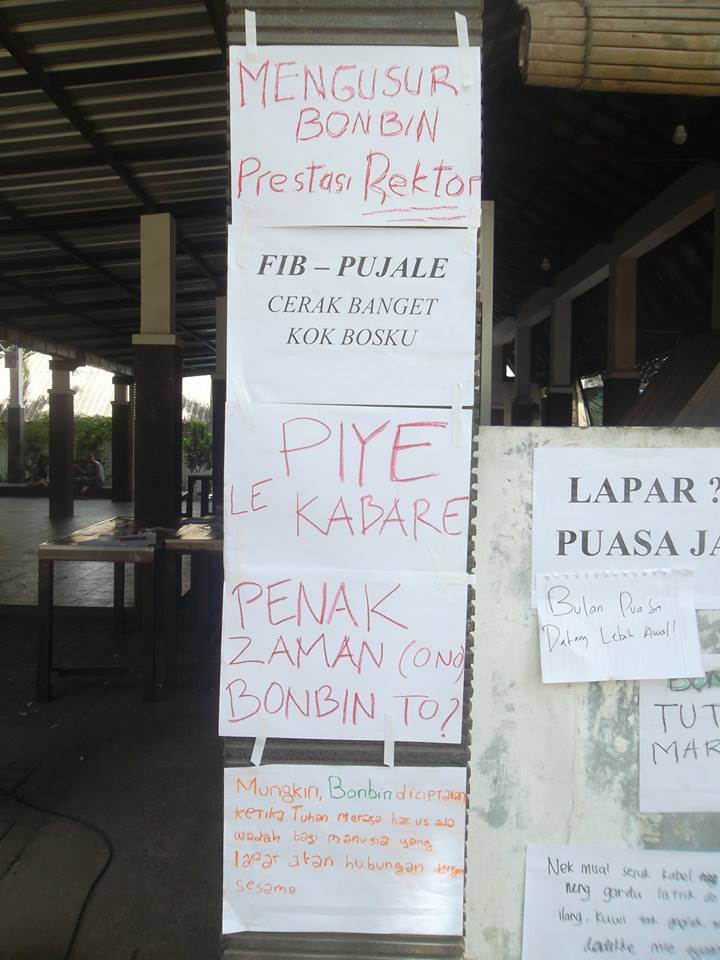 MENGUSUR
BONBIN
Prestasi Rektor
FIB – PUJALE
CERAK BANGET
KOK BOSKU
PIYE
LE KABARE
PENAK
ZAMAN (ONO)
BONBIN TO?
Mungkin, Bonbin diciptakan
ketika Tuhan Merasa harus ada
wadah bagi manusia yang
lapar akan hubungan dengan
sesama
LAPAR ?
PUASA JA
Bulan Puasa
Datang Lebih Awal!
BON
TUT
MAR
Nek misal seruk kabel
neng gardu listrik
ilang, kuwi tak
mie